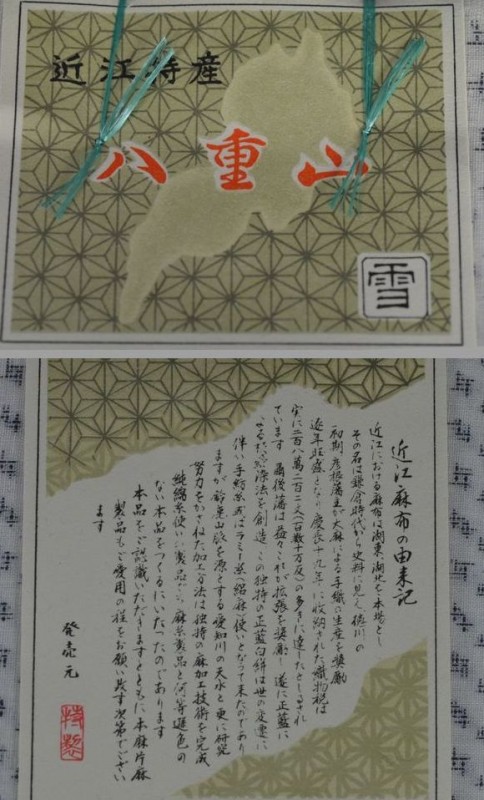 近江特産
八重山
雪
近江麻布の由来記
近江における麻布は湖東、湖北を本場とし
その名は鎌倉時代から史料に見え 徳川の
初期彦根藩主が大麻による手織の生産を奨励
逐年旺盛となり慶長十九年に収納された織物税は
実に二百八萬二百二文(百数十万反)の多きに達したとしるされ
ています 爾後藩は益々これが拡張を奨励し 遂に正藍に
よる 染法を創造 この独特の正藍白絣は世の変遷に
伴い手紡糸或はラミー糸(絽麻)使いとなって来たのであり
ますが鈴鹿山脈を源とする愛知川の天水と更に研究
努力をかさねた加工方法は独特の麻加工技術を完成
純綿糸使いの製品に 麻糸製品と何等遜色の
ない本品をつくるにいたったのであります
本品をご認識いただきますとともに本麻片麻
製品もご愛用の程をお願い致す次第でござい
ます
発売元
特製